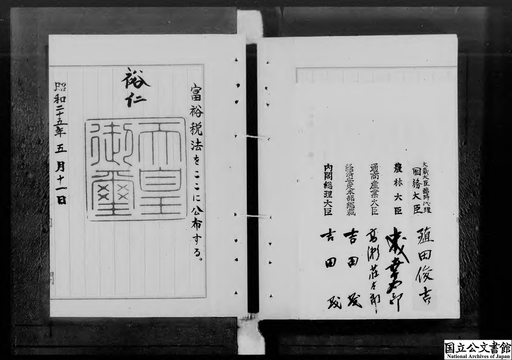 富裕税法をここに公布する。
裕仁
天皇御璽
昭和二十五年五月十一日
大蔵大臣臨時代理
国務大臣 殖田俊吉
農林大臣
通商産業大臣 高瀬荘太郎
経済安定本部総裁 吉田茂
内閣総理大臣 吉田茂
国立公文書館
National Archives of Japan